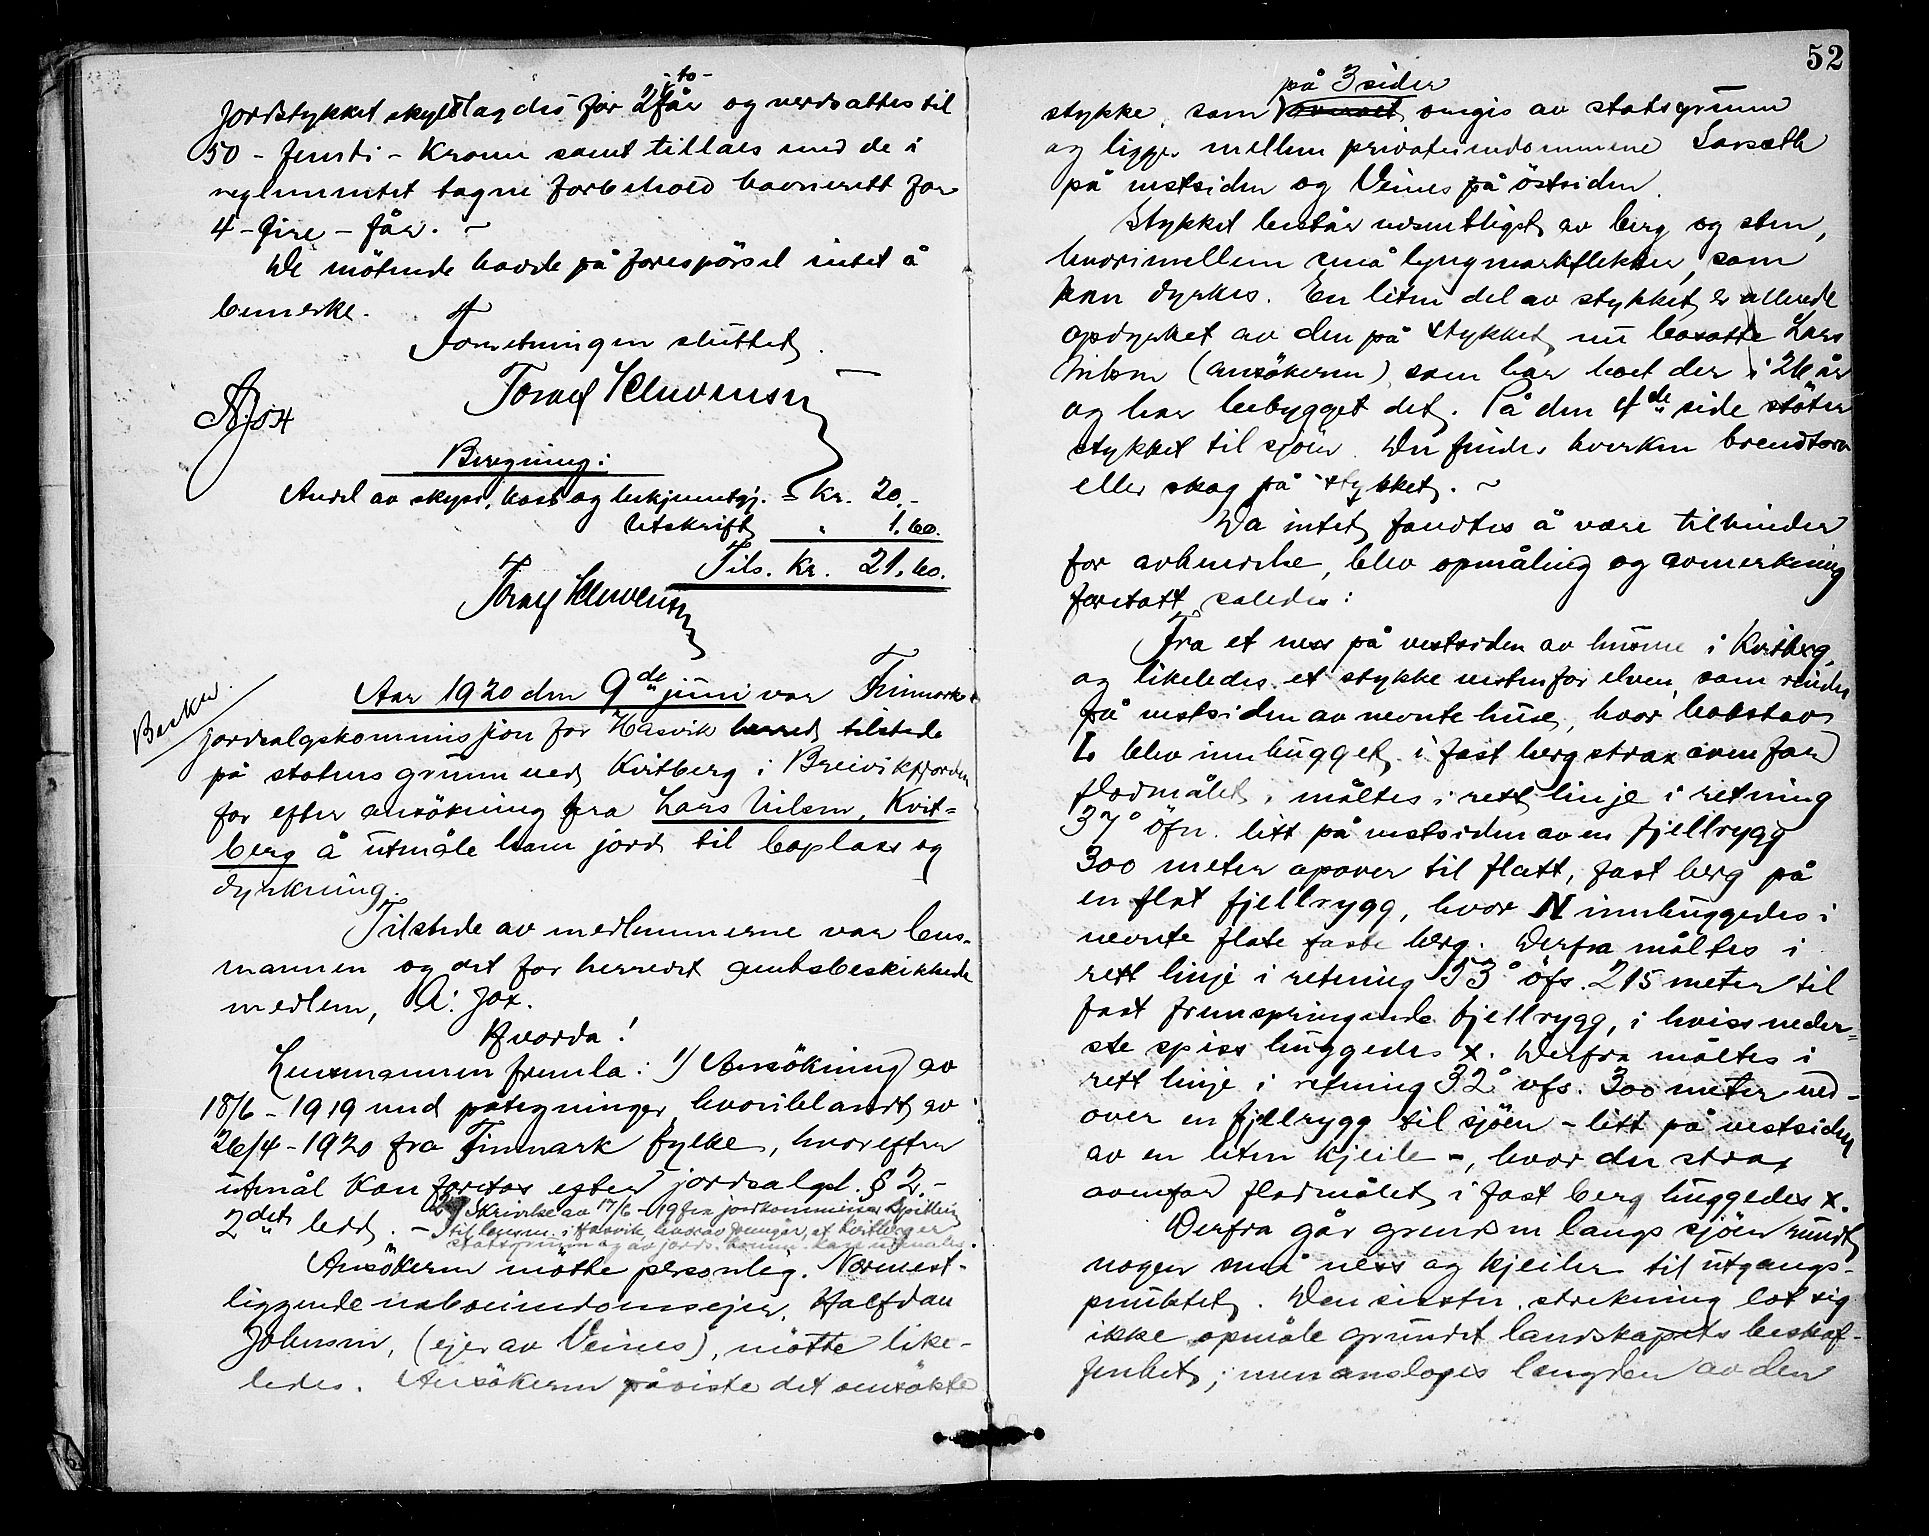 52
Jordstykket skyldlagdes for 2 -to- får og verdsattes til
50 - femti - Kroner samt tillaes med de i
reglementet tagne forbehold havnerett for
4 - fire - får. ~
De mötende havde på forespörsel intet å
bemerke.
Forretningen sluttet.
A Jox
Beregning:
Andel av skyss, kost og lenkjentgj. = Kr. 20,-
Utskrift " 1.60.
Tils. Kr. 21.60.
Aar 1920 den 9de juni var Finmarks
jordsalgskommissjon for Hasvik herred tilstede
på statens grunn ved Kvitberg i Breivikfjorden
for efter ansökning fra Lars Nilsen, Kvit=
berg å utmåle ham jord til boplass og
dyrkning.
Tilstede av medlemmerne var lens-
mannen og det for herredet amtsbeskikkede
medlem, A. Jox.
Hvorda!
Lensmannen fremla: 1) Ansökning av
18/6 - 1919 med påtegninger hvoriblandt av
26/4 - 1920 fra Finmark fylke, hvorefter
utmål kan foretas efter jordsalgsl. § 2,-
2det ledd. - 2) Skrivelse av 17/6 - 19 fra jordkommissær
til lensm. i Hasvik hvorav fremgår, at Kvitberg er
statsgrunn og av jords. komm. kan utmåles.
Ansökeren mötte personleg. Nærmest-
liggende naboeiendomsejer, Halfdan
Johnsen, (ejer av Veines), mötte like-
ledes. Ansökeren påviste det ansökte
på 3 sider
stykke, som omgis av statsgrunn
og ligger mellem privateiendommene Sarseth
på vestsiden og Veines på östsiden.
Stykket består vesentligst av berg og sten,
hvorimellem små lyngmarkflekker, som
kan dyrkes. En liten del av stykket er allerede
opdyrket av den på stykket nu bosatte Lars
Nilsen (ansökeren) som har boet der i 26 år
og har bebygget det. På den 4de side stöter
stykket til sjöen. Der findes hverken brendtorv
eller skog på stykket. ~
Da intet fandtes å være tilhinder
for avhendelse, blev opmåling og avmerkning
foretatt således:
Fra et ness på vestsiden av husene i Kvitberg,
og likeledes et stykke vestenfor elven, som rinder
på vestsiden av nevnte huse, hvor bokstav
L blev innhugget i fast berg strax ovenfor
flodmålet, måltes i rett linje i retning
37° öfn. litt på vestsiden av en fjellrygg
300 meter opover til flatt, fast berg på
en flat fjellrygg, hvor N innhuggedes i
nevnte flate faste berg. Derfra måltes i
rett linje i retning 53° öfs. 215 meter til
fast fremspringende fjellrygg, i hviss neder=
ste spiss huggedes x. Derfra måltes i
rett linje i retning 32° vfs. 300 meter ned-
over en fjellrygg til sjöen - litt på vestsiden
av en liten kjeile -, hvor der strax
ovenfor flodmålet i fast berg huggedes x.
Derfra går grensen langs sjöen rundt
nogen små ness og kjeiler til utgangs-
punktet. Den sisste strekning lot sig
ikke opmåle grundet landskapets beskaf-
fenhet; men ansloges lengden av den